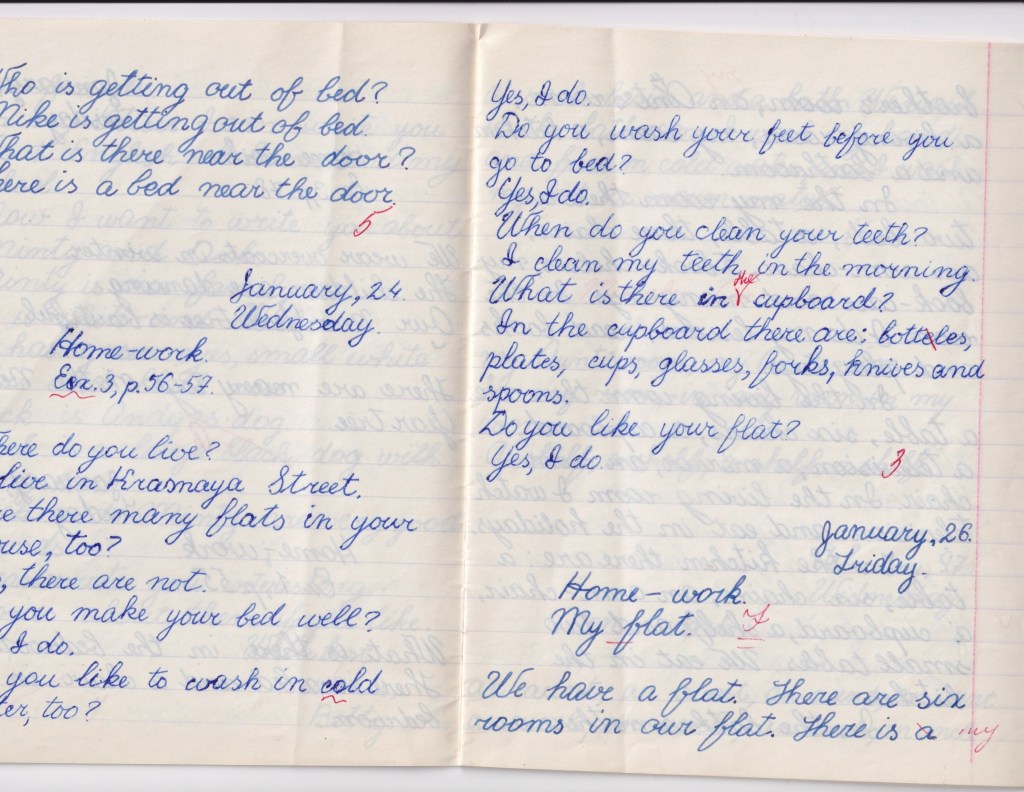 Who is getting out of bed?
Mike is getting out of bed.
What is there near the door?
There is a bed near the door.
5
January, 24.
Wednesday.
Home-work.
Eex. 3, p. 56-57.
here do you live?
live in Krasnaya Street.
re there many flats in your
use, too?
, there are not.
you make your bed well?
I do.
you like to wash in cold
ter, too?
Yes, I do.
Do you wash your feet before you
go to bed?
Yes, I do.
When do you clean your teeth?
I clean my teeth in the morning.
What is there in the cupboard?
In the cupboard there are: botteles,
plates, cups, glasses, forks, knives and
spoons.
Do you like your flat?
Yes, I do.
3
January, 26.
Friday.
Home-work.
My flat. F
We have a flat. There are six
rooms in our flat. There is a my